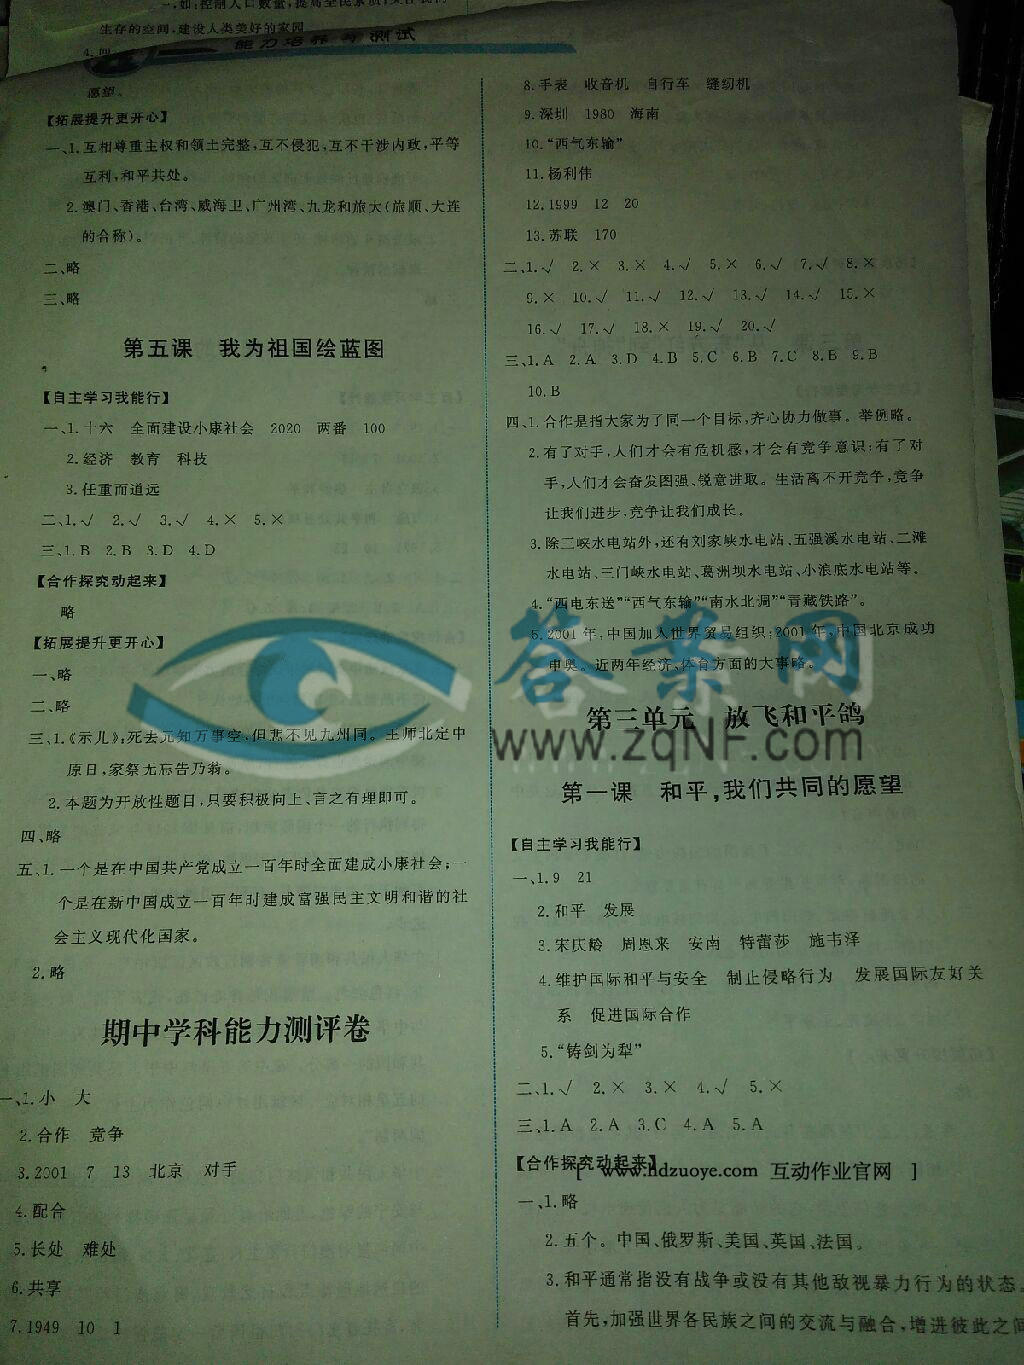 一,如:控制人口数量,提高全民素质,
生存的空间,建设人类美好的家园
4.
能力培养与测试
愿望。
【拓展提升更开心】
一、1.互相尊重主权和领土完整,互不侵犯,互不干涉内政,平等
互利,和平共处。
2.澳门、香港、台湾、威海卫、广州湾、九龙和旅大(旅顺、大连
的合称)。
二、略
三、略
第五课 我为祖国绘蓝图
【自主学习我能行】
一、1.十六 全面建设小康社会 2020 两番 100
2.经济 教育 科技
3.任重而道远
二、1.√ 2.√ 3.√ 4.× 5.×
三、1.B 2.B 3.D 4.D
【合作探究动起来】
略
【拓展提升更开心】
一、略
二、略
三、1.《示儿》:死去元知万事空,但悲不见九州同。王师北定中
原日,家祭无忘告乃翁。
2.本题为开放性题目,只要积极向上、言之有理即可。
四、略
五、1.一个是在中国共产党成立一百年时全面建成小康社会;一
个是在新中国成立一百年时建成富强民主文明和谐的社
会主义现代化国家。
2.略
期中学科能力测评卷
一、1.小 大
2.合作 竞争
3.2001 7 13 北京 对手
4.配合
5.长处 难处
6.共享
7.1949 10 1
8.手表 收音机 自行车 缝纫机
9.深圳 1980 海南
10.“西气东输”
11.杨利伟
12.1999 12 20
13.苏联 170
二、1.√ 2.× 3.× 4.√ 5.× 6.√ 7.√ 8.×
9.× 10.√ 11.√ 12.√ 13.√ 14.√ 15.×
16.√ 17.√ 18.× 19.√ 20.√
三、1.A 2.A 3.D 4.B 5.C 6.B 7.C 8.B 9.B
10.B
四、1.合作是指大家为了同一个目标,齐心协力做事。举例略。
2.有了对手,人们才会有危机感,才会有竞争意识;有了对
手,人们才会奋发图强、锐意进取。生活离不开竞争,竞争
让我们进步,竞争让我们成长。
3.除三峡水电站外,还有刘家峡水电站、五强溪水电站、二滩
水电站、三门峡水电站、葛洲坝水电站、小浪底水电站等。
4.“西电东送”“西气东输”“南水北调”“青藏铁路”。
5.2001年,中国加入世界贸易组织;2001年,中国北京成功
申奥。近两年经济、体育方面的大事略。
答案网
www.zqNF.com
第三单元 放飞和平鸽
第一课 和平,我们共同的愿望
【自主学习我能行】
一、1.9 21
2.和平 发展
3.宋庆龄 周恩来 安南 特蕾莎 施韦泽
4.维护国际和平与安全 制止侵略行为 发展国际友好关
系 促进国际合作
5.“铸剑为犁”
二、1.√ 2.× 3.× 4.√ 5.×
三、1.A 2.A 3.C 4.A 5.A
【合作探究动起来】
[ www.hdzuoye.com 互动作业官网 ]
一、1.略
2.五个。中国、俄罗斯、美国、英国、法国。
3.和平通常指没有战争或没有其他敌视暴力行为的状态。
首先,加强世界各民族之间的交流与融合,增进彼此之间